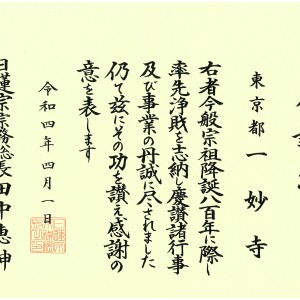 東京都 一妙寺
右者今般宗祖降誕八百年に際し
率先浄財を志納し慶讃諸行事
及び事業の丹誠に尽されました
仍て茲にその功を讃え感謝の
意を表します
令和四年四月一日
日蓮宗宗務総長田中恵紳